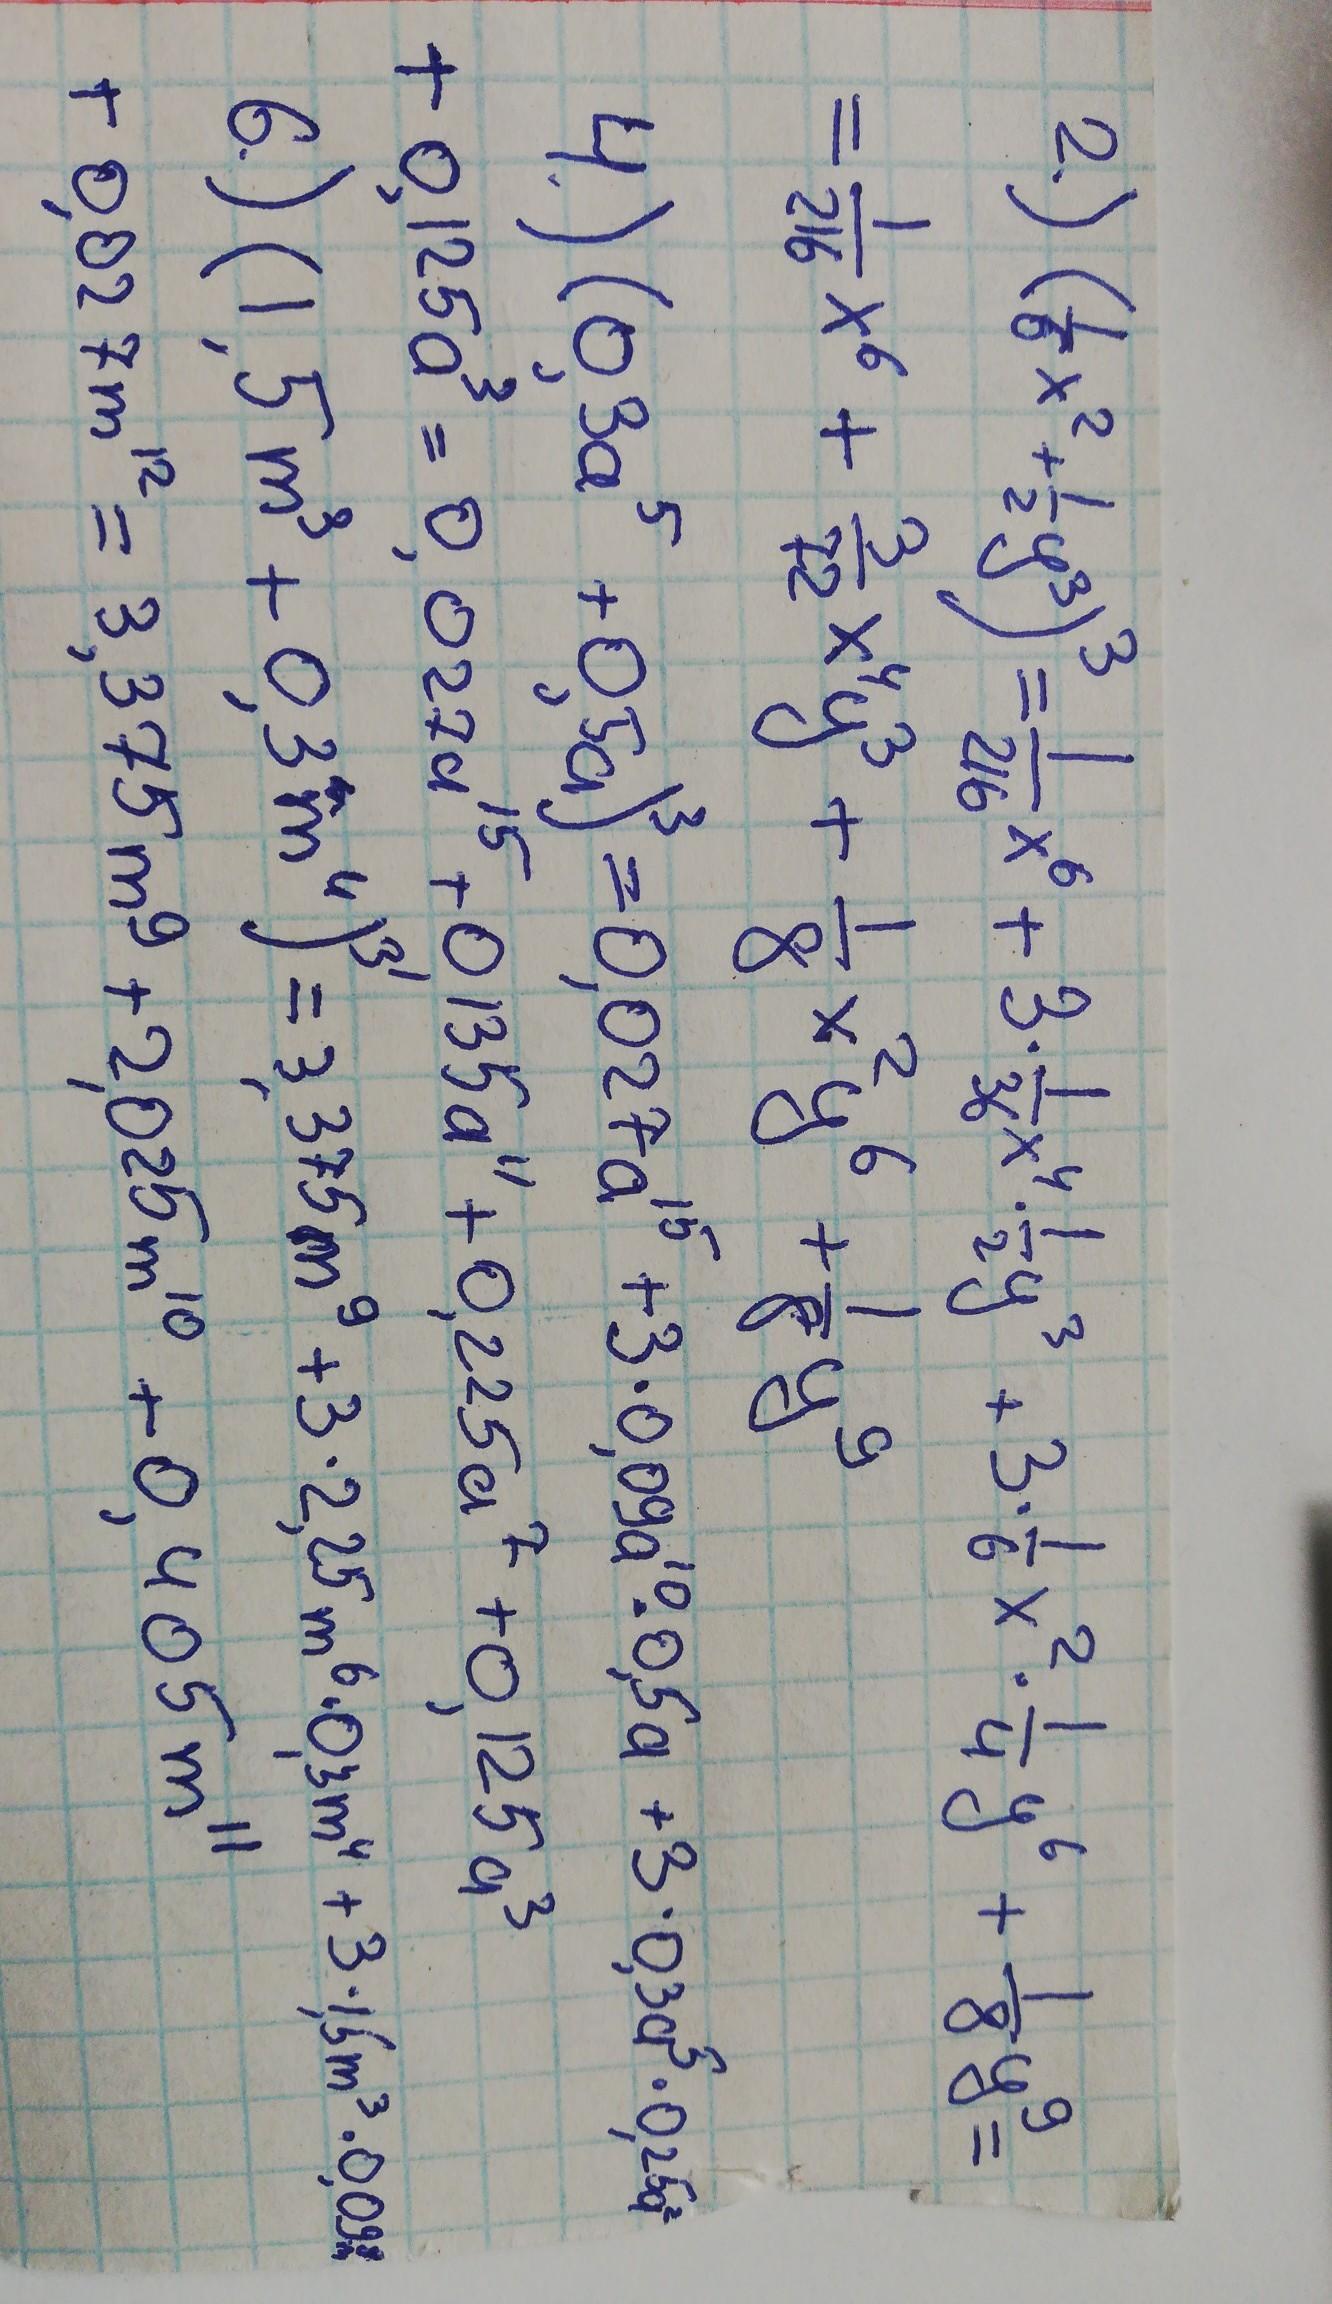 2.) (1/6 x² + 1/2 y³)³ = 1/216 x⁶ + 3·1/36 x⁴·1/2 y³ + 3·1/6 x²·1/4 y⁶ + 1/8 y⁹ =
= 1/216 x⁶ + 3/72 x⁴y³ + 1/8 x²y⁶ + 1/8 y⁹
4.) (0,3a⁵ + 0,5a)³ = 0,027a¹⁵ + 3·0,09a¹⁰·0,5a + 3·0,3a⁵·0,25a²
+ 0,125a³ = 0,027a¹⁵ + 0135a¹¹ + 0,225a⁷ + 0,125a³
6.) (1,5m³ + 0,3m⁴)³ = 3,375m⁹ + 3·2,25m⁶·0,3m⁴ + 3·1,5m³·0,09m⁸
+ 0,027m¹² = 3,375m⁹ + 2,025m¹⁰ + 0,405m¹¹